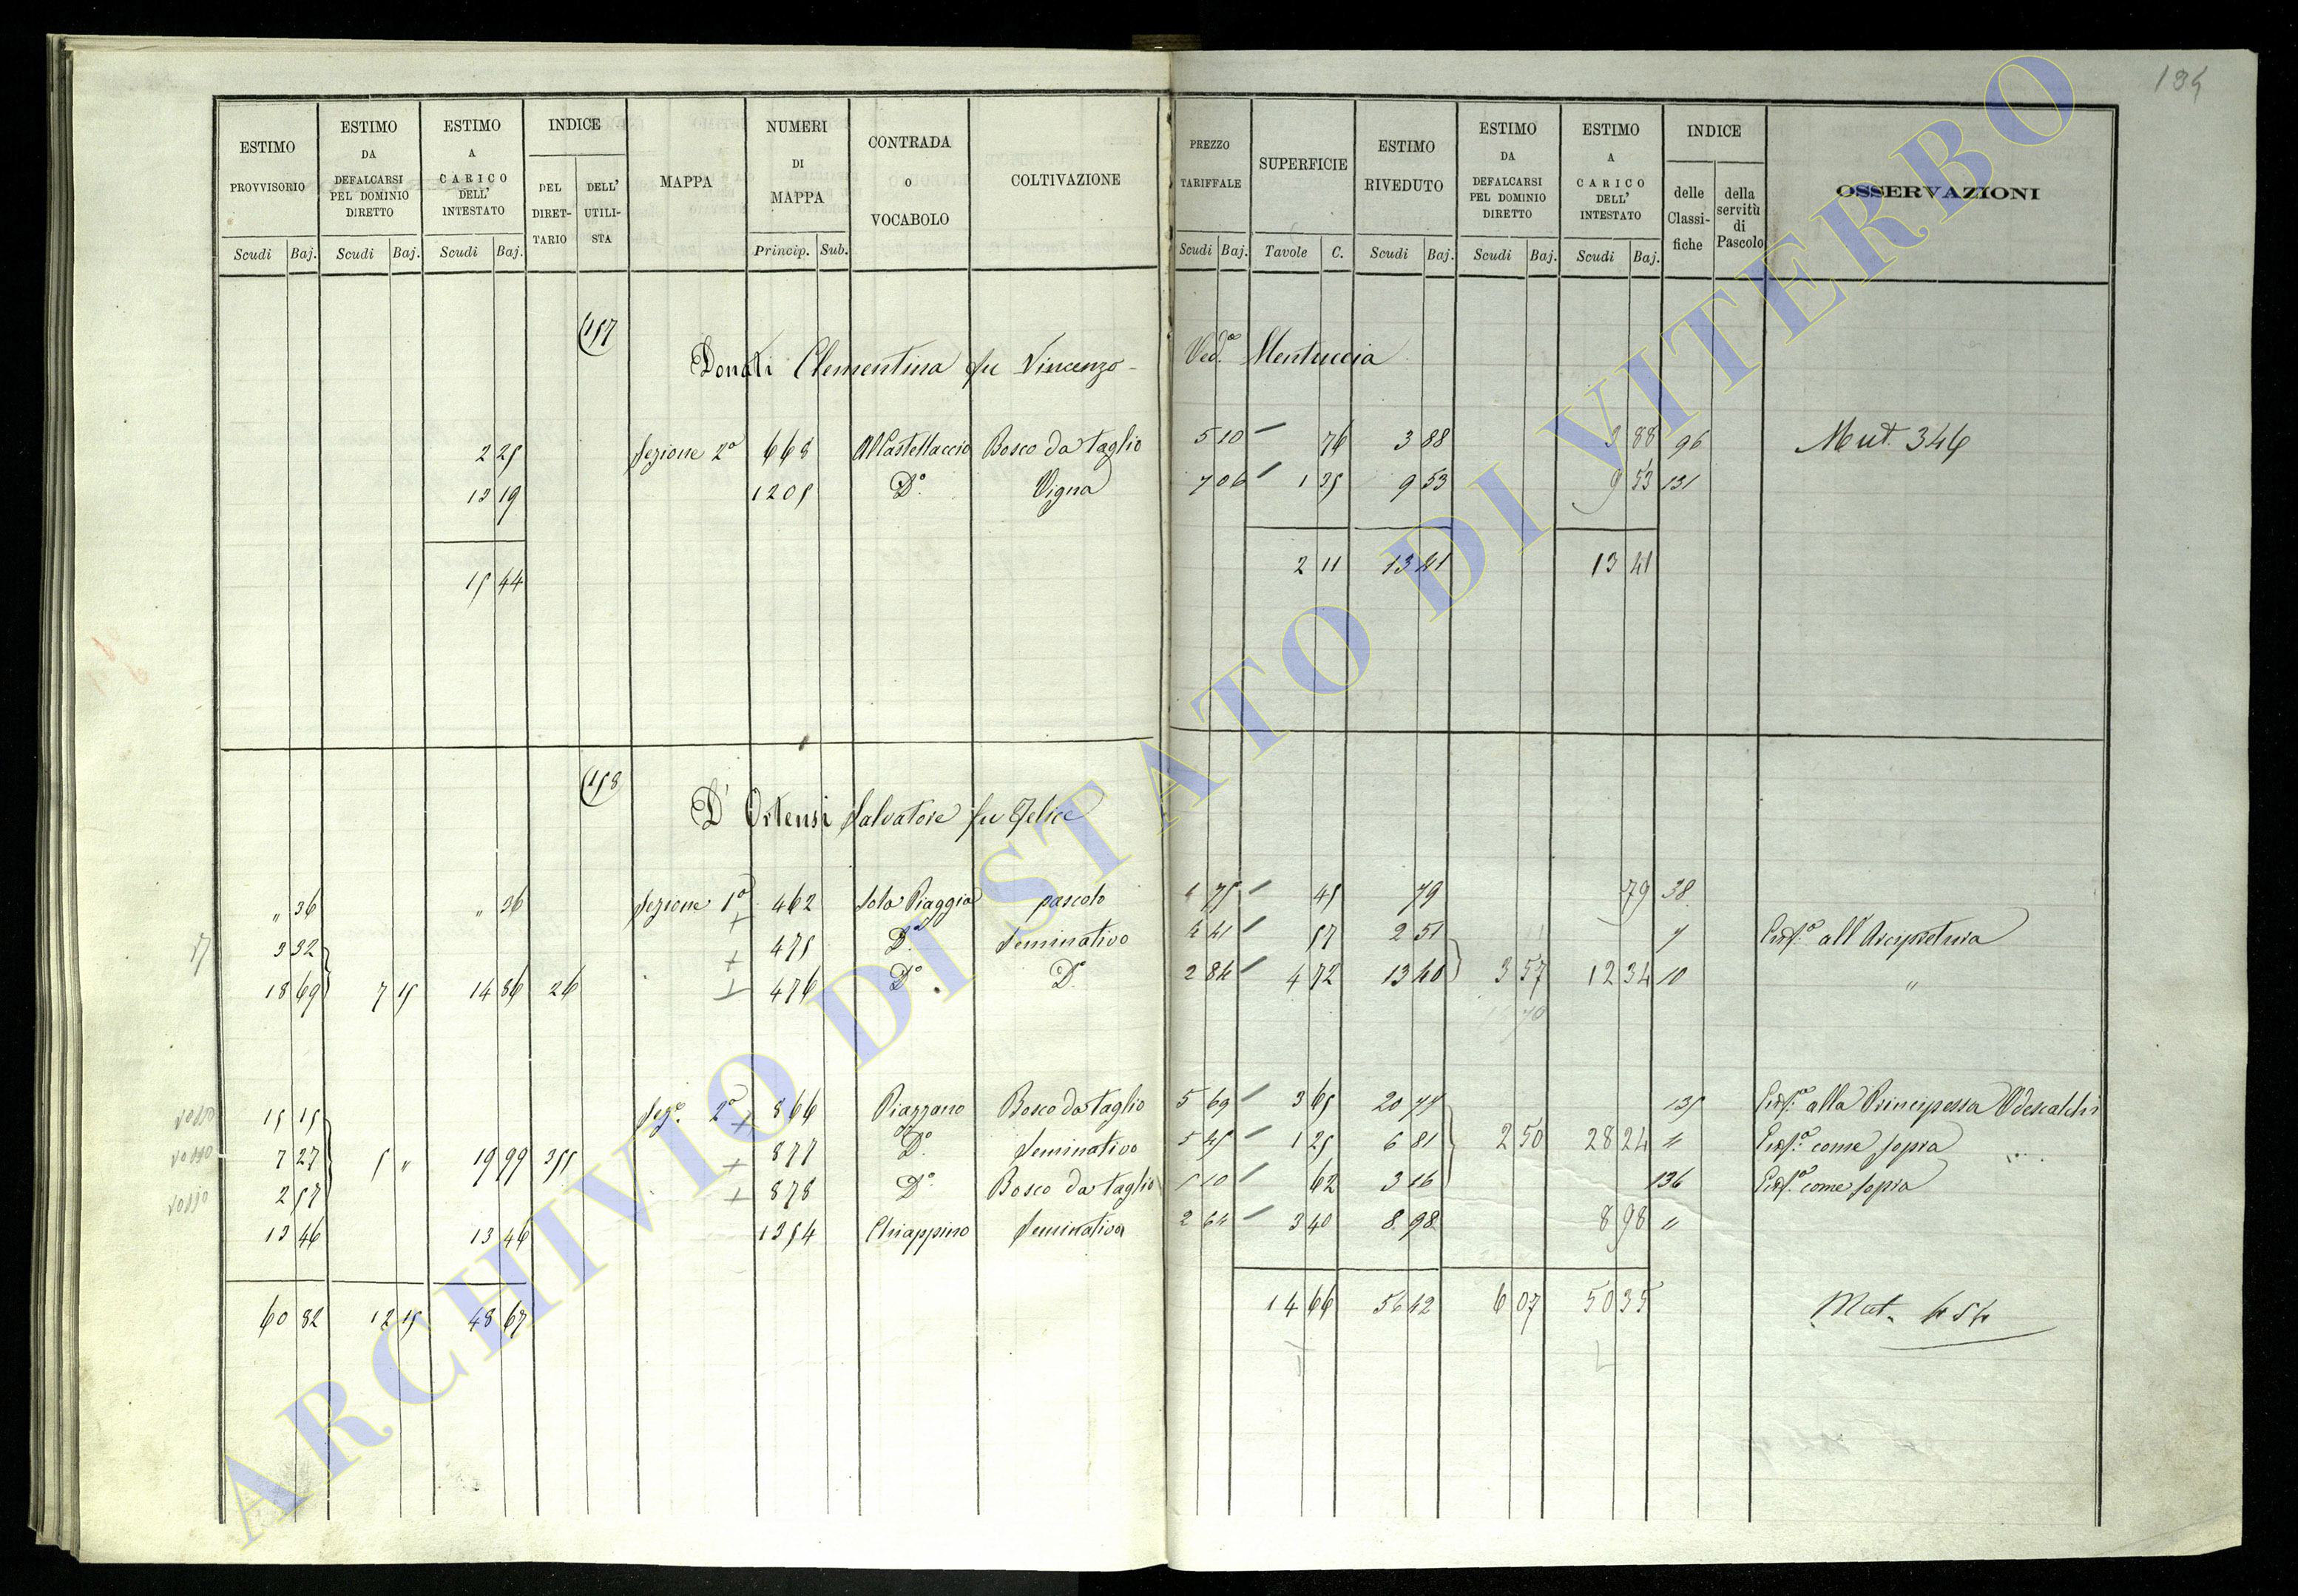 134
ESTIMO PROVVISORIO | ESTIMO DA DEFALCARSI PEL DOMINIO DIRETTO | ESTIMO A CARICO DELL' INTESTATO | INDICE | MAPPA | NUMERI DI MAPPA | CONTRADA O VOCABOLO | COLTIVAZIONE | PREZZO TARIFFALE | SUPERFICIE | ESTIMO RIVEDUTO | ESTIMO DA DEFALCARSI PEL DOMINIO DIRETTO | ESTIMO A CARICO DELL' INTESTATO | INDICE | OSSERVAZIONI
DEL DIRETTARIO | DELL' UTILISTA | delle Classifiche | della servitù di Pascolo
Scudi | Baj. | Scudi | Baj. | Scudi | Baj. | Princip. | Sub. | Scudi | Baj. | Tavole | C. | Scudi | Baj. | Scudi | Baj. | Scudi | Baj.
157
Donati Clementina fu Vincenzo - Ved.a Mentuccia
2 25 | Sezione 2a | 668 | Al Castellaccio | Bosco da taglio | 5 10 | 76 | 3 88 | 3 88 | 96 | Mut. 346
13 19 | 1205 | Do. | Vigna | 7 06 | 1 35 | 9 53 | 9 53 | 131
15 44 | 2 11 | 13 41 | 13 41
158
D'Ortensi Salvatore fu Felice
" 36 | " 36 | Sezione 1a | 462 | Sola Piaggia | pascolo | 1 75 | 45 | 79 | 79 | 38
3 32 | 475 | Do. | Seminativo | 4 41 | 57 | 2 51 | " | Enf.a all'Arcipretura
18 69 | 7 15 | 14 86 | 26 | 476 | Do. | Do. | 2 84 | 4 72 | 13 40 | 3 57 | 12 34 | 10 | "
15 15 | Sez.e 2a | 866 | Piazzano | Bosco da taglio | 5 69 | 3 65 | 20 77 | 135 | Enf.a alla Principessa Odescalchi
7 27 | 5 " | 19 99 | 355 | 877 | Do. | Seminativo | 5 45 | 1 25 | 6 81 | 2 50 | 28 24 | " | Enf.a come sopra
2 57 | 878 | Do. | Bosco da taglio | 5 10 | 62 | 3 16 | 136 | Enf.a come sopra
13 46 | 13 46 | 1354 | Chiappino | Seminativa | 2 64 | 3 40 | 8 98 | 8 98 | "
60 82 | 12 15 | 48 67 | 14 66 | 56 42 | 6 07 | 50 35 | Mut. 454
ARCHIVIO DI STATO DI VITERBO